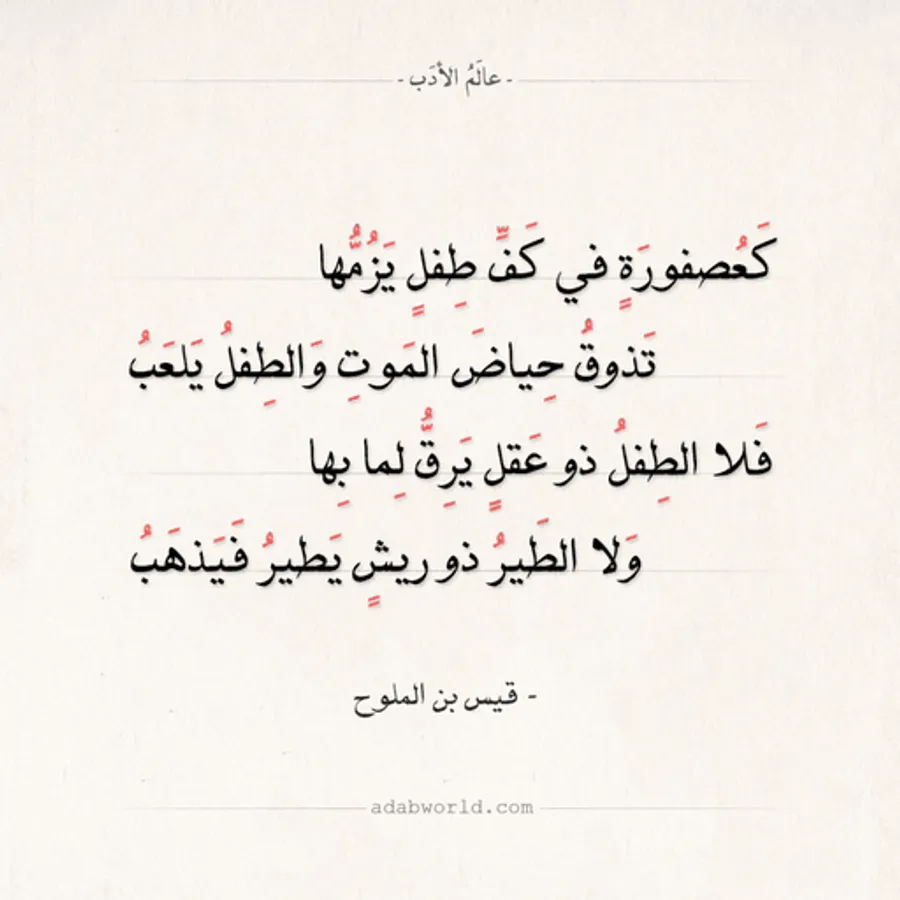 - عالَمُ الأدَب -
كَعُصفورَةٍ في كَفِّ طِفلٍ يَزُمُّها
تَذوقُ حِياضَ المَوتِ وَالطِفلُ يَلعَبُ
فَلا الطِفلُ ذو عَقلٍ يَرِقُّ لِما بِها
وَلا الطَيرُ ذو ريشٍ يَطيرُ فَيَذهَبُ
- قيس بن الملوح
adabworld.com